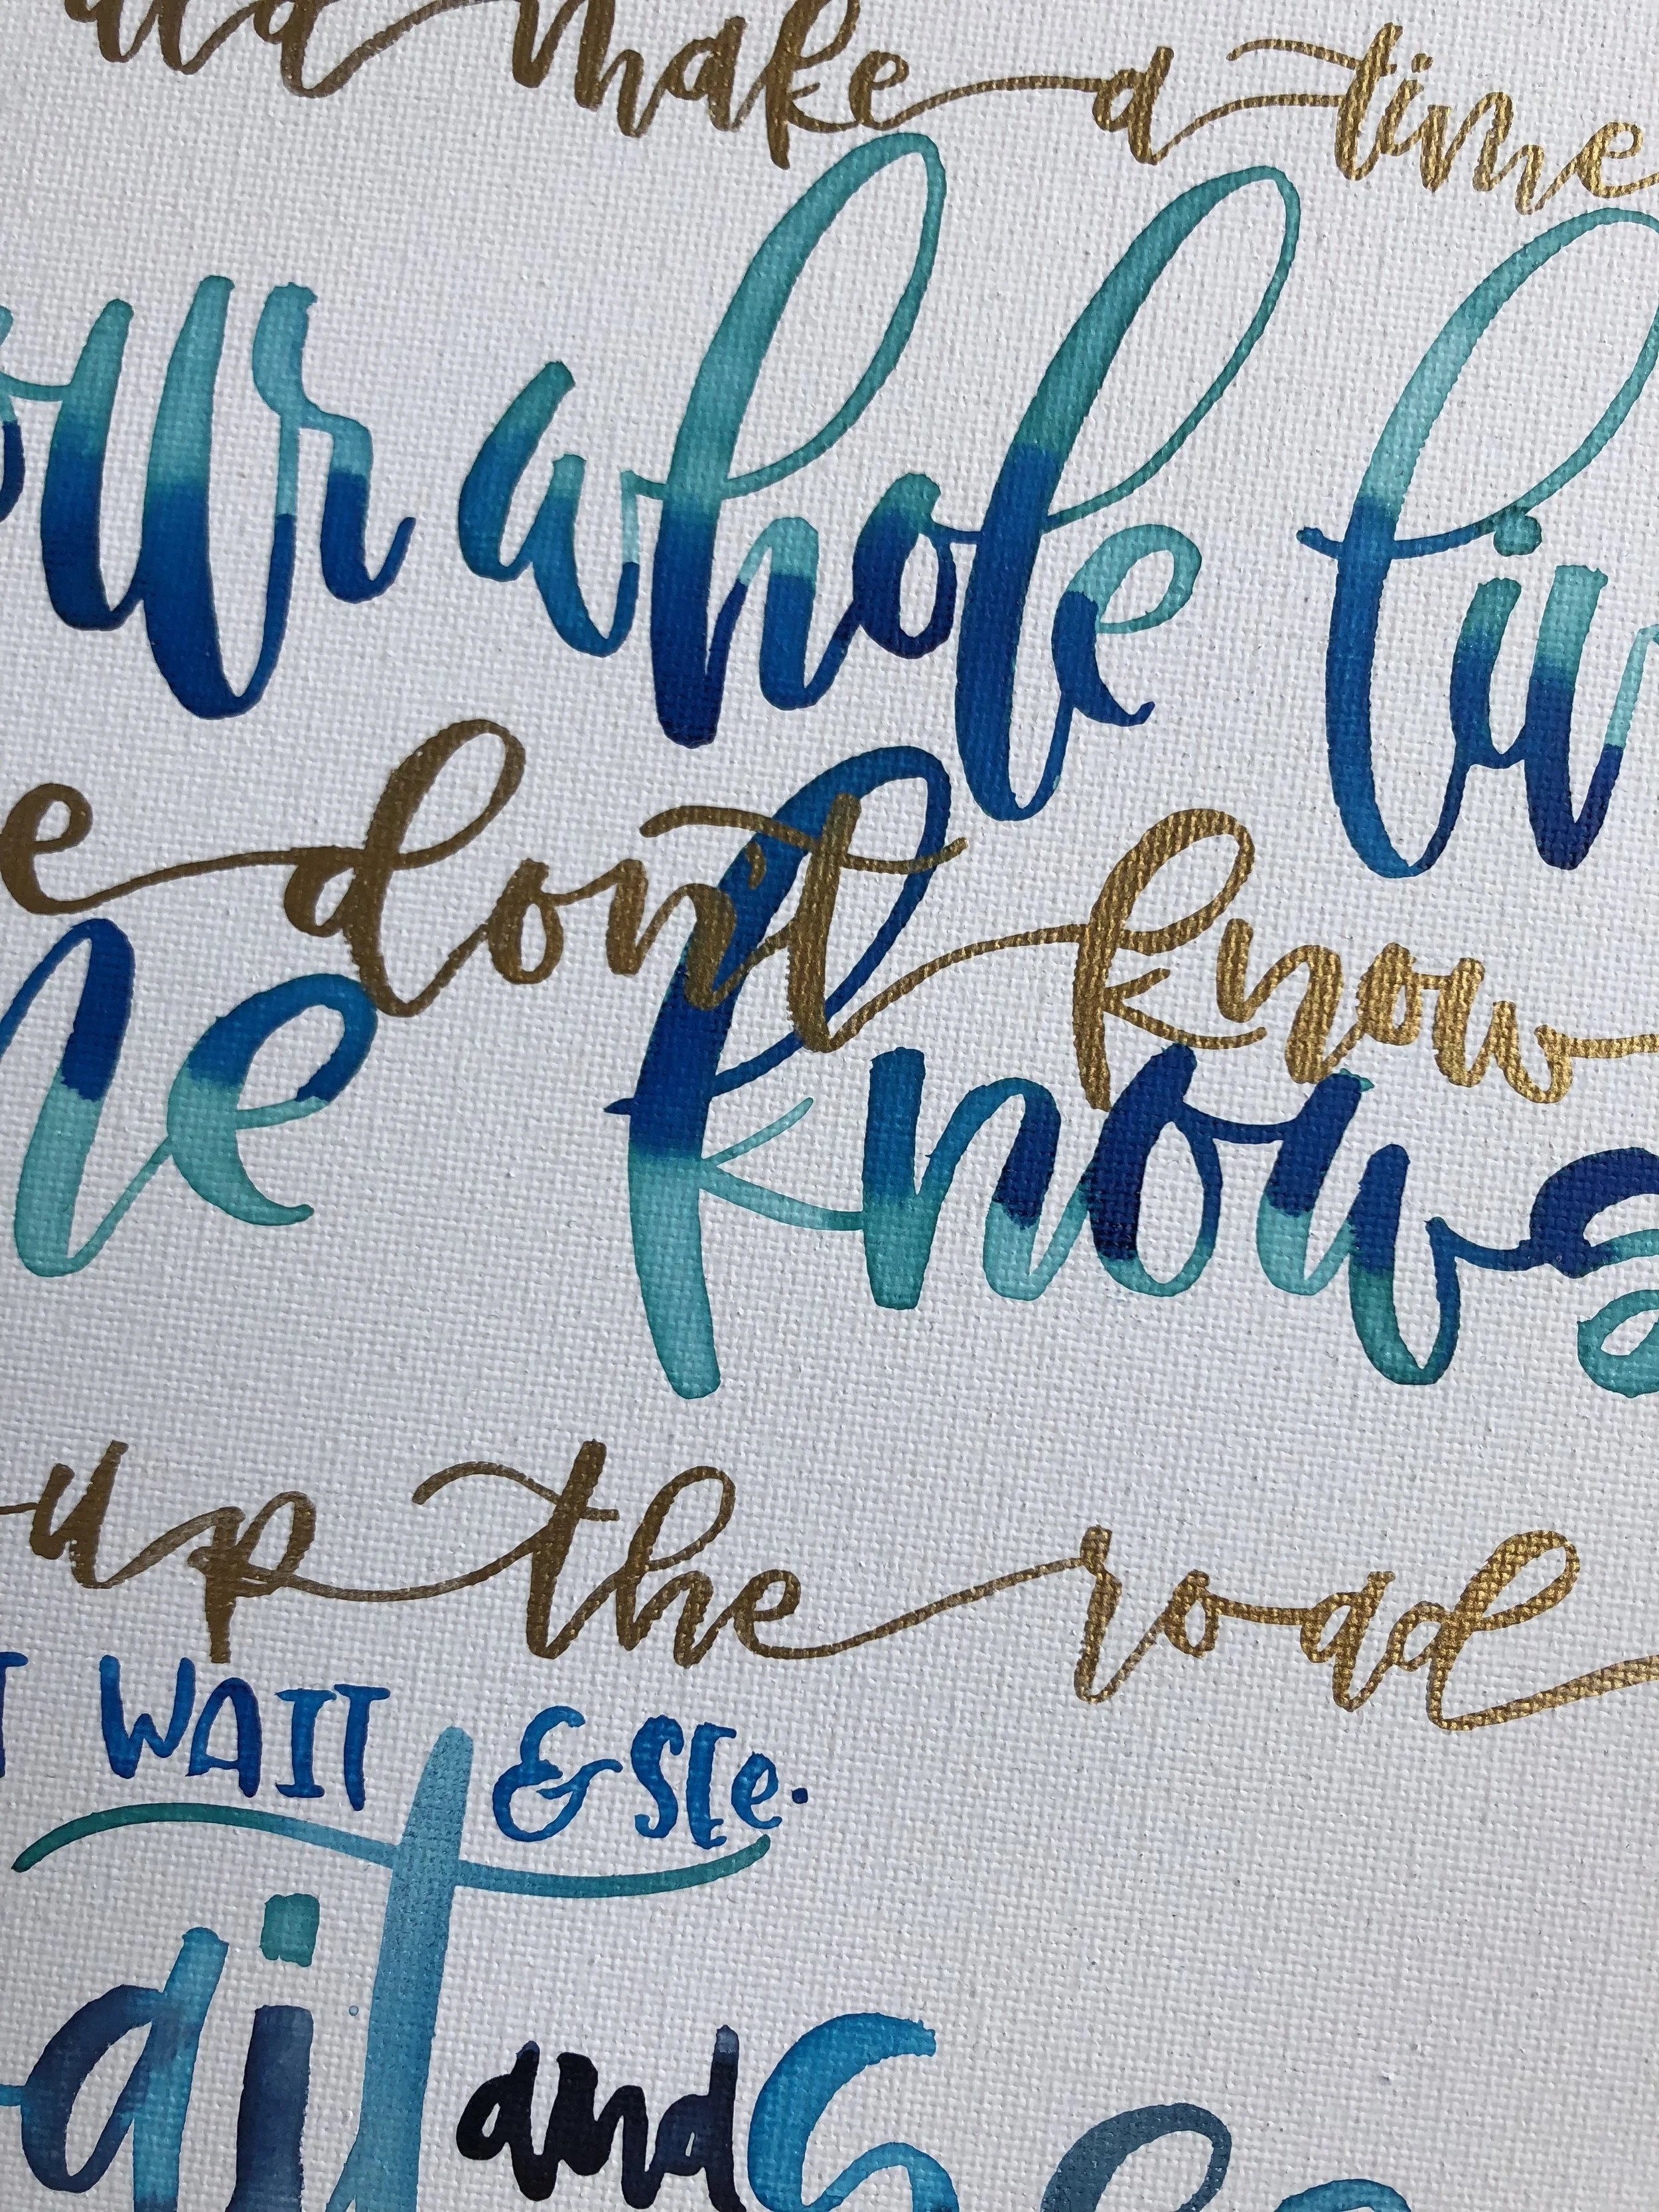 make a time
our whole liv
e don't know
ne knows
up the road
T WAIT & SEe.
ait and Se